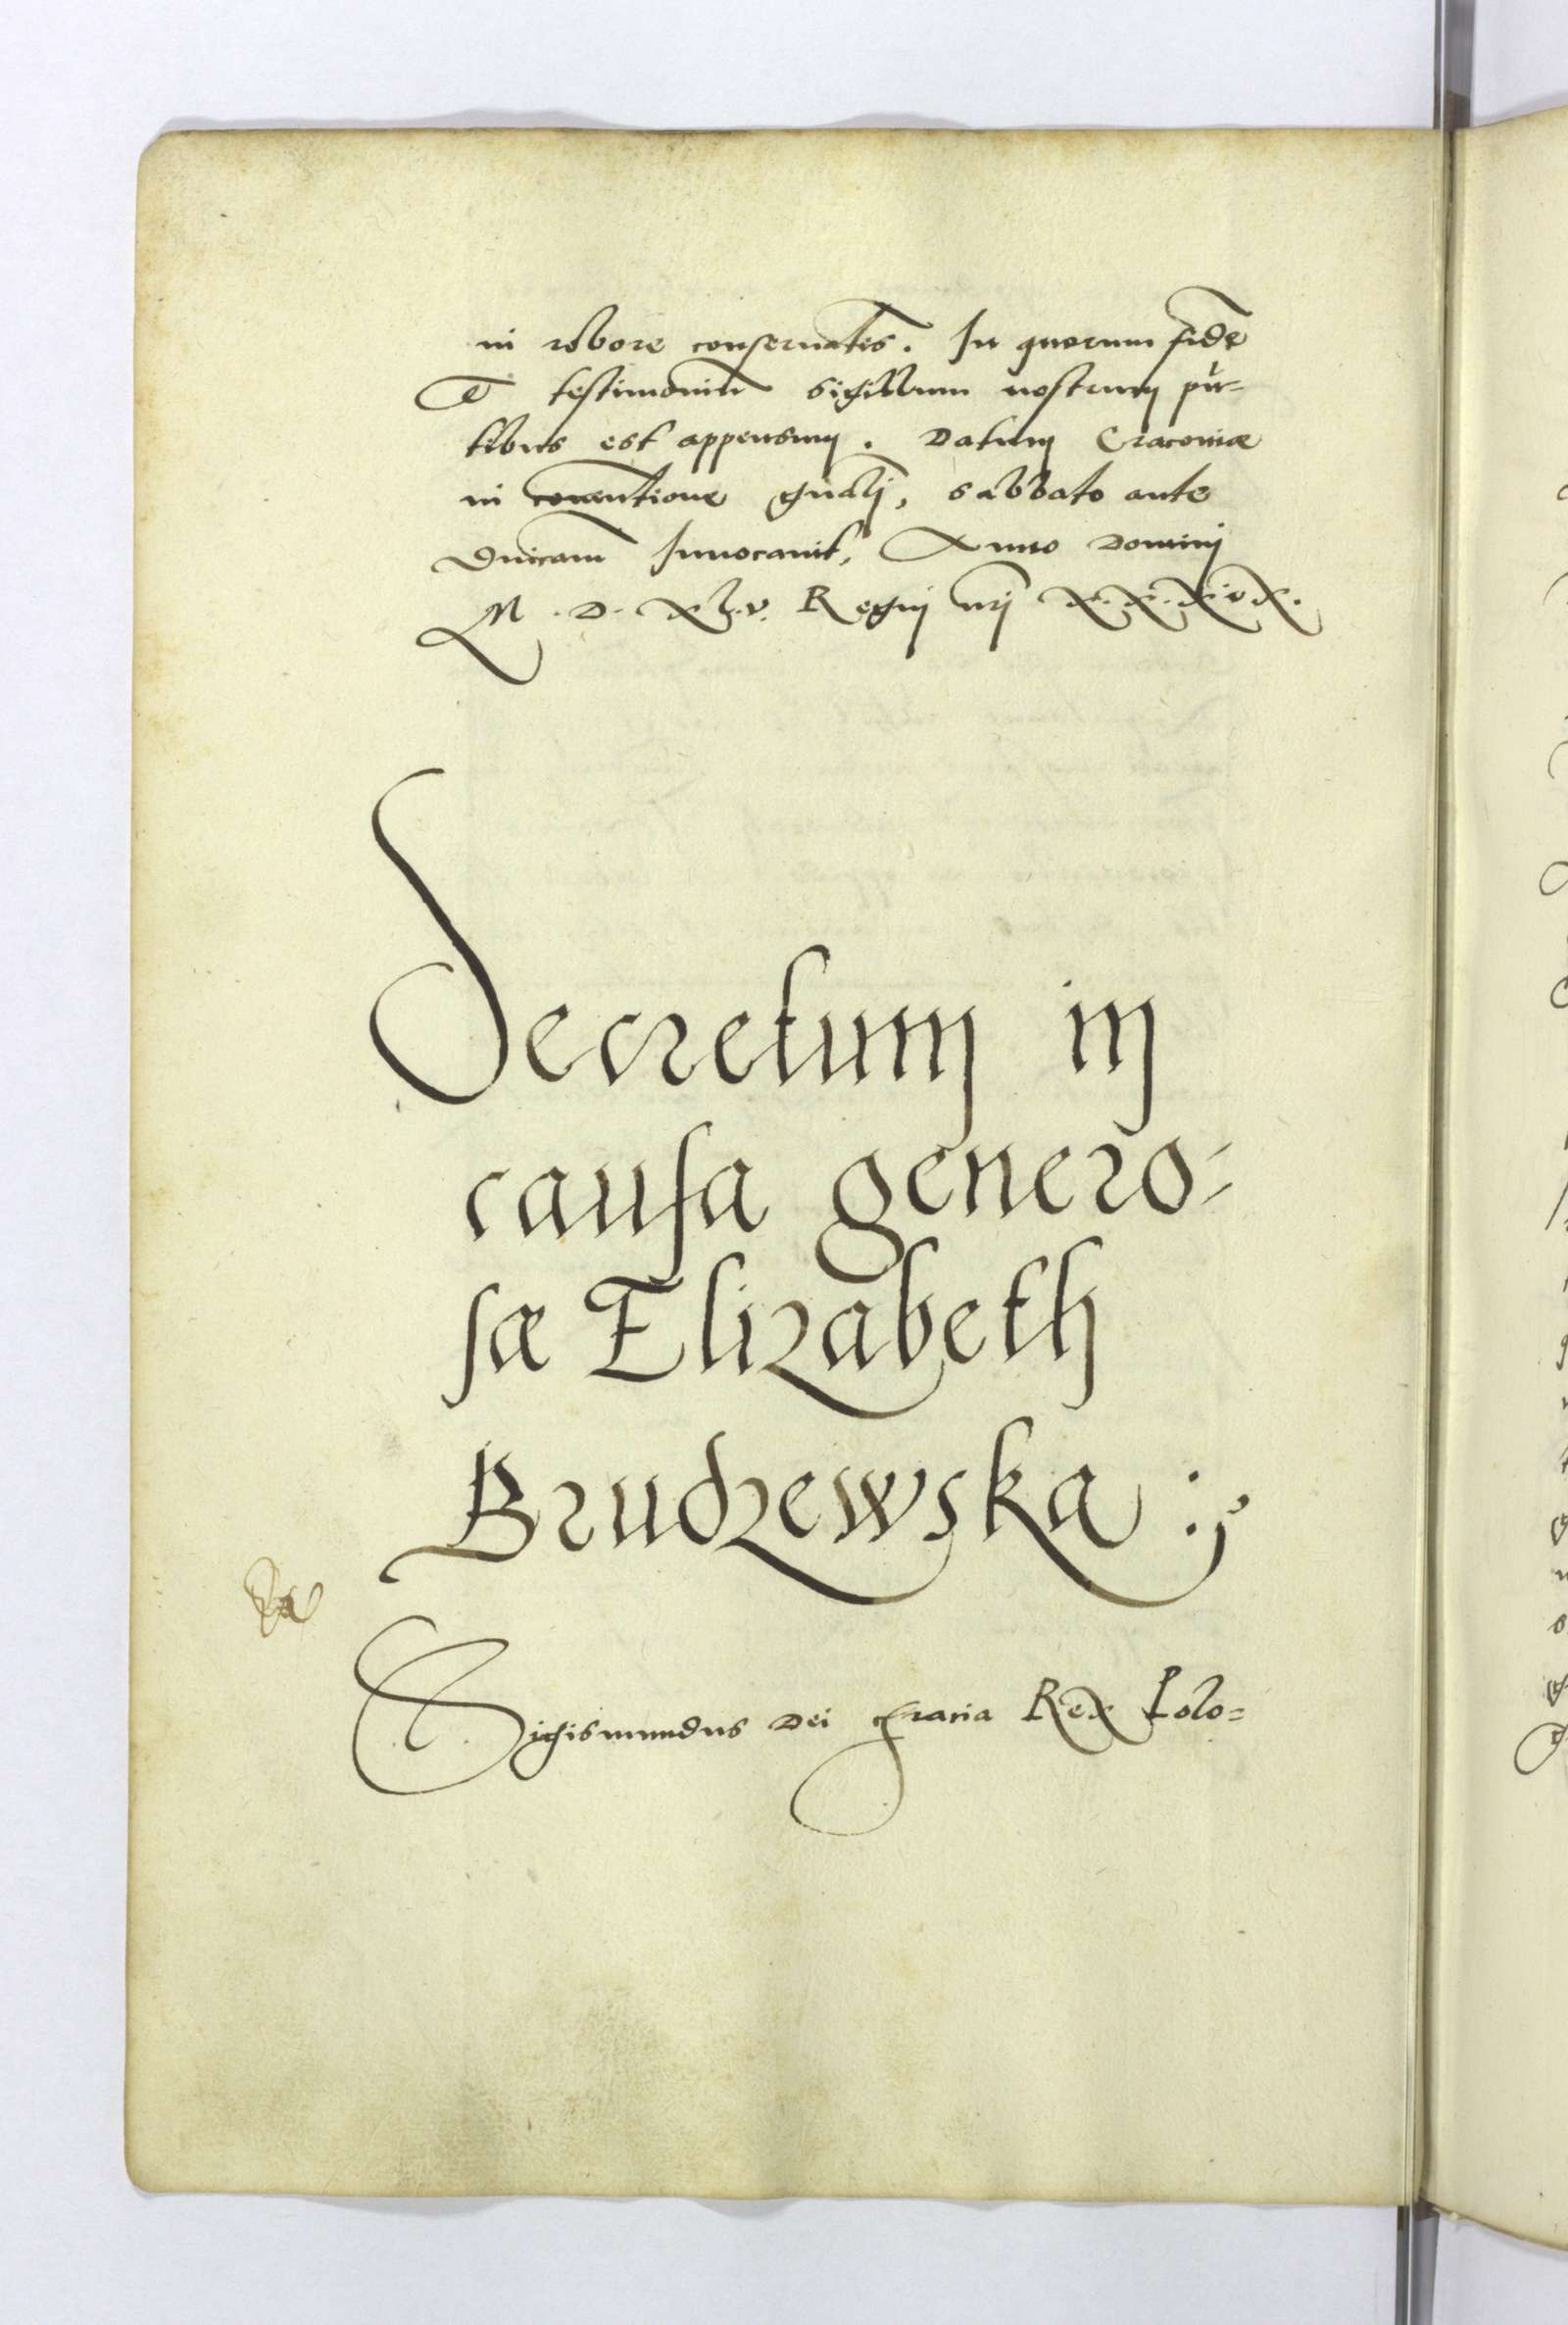 in robore conseruantes. In quorum fide
et testimoniũ Sigillum nostrum pñ-
tibus est appensum. Datum Cracouiæ
in conuentione gnali, sabbato ante
Dnicam Inuocauit, Anno Domini
M.D.XLV. Regni nri X.X.X.i.X.
Decretum in
causa genero-
sæ Elizabeth
Brudzewska :;
Sigismundus Dei Gracia Rex Polo=